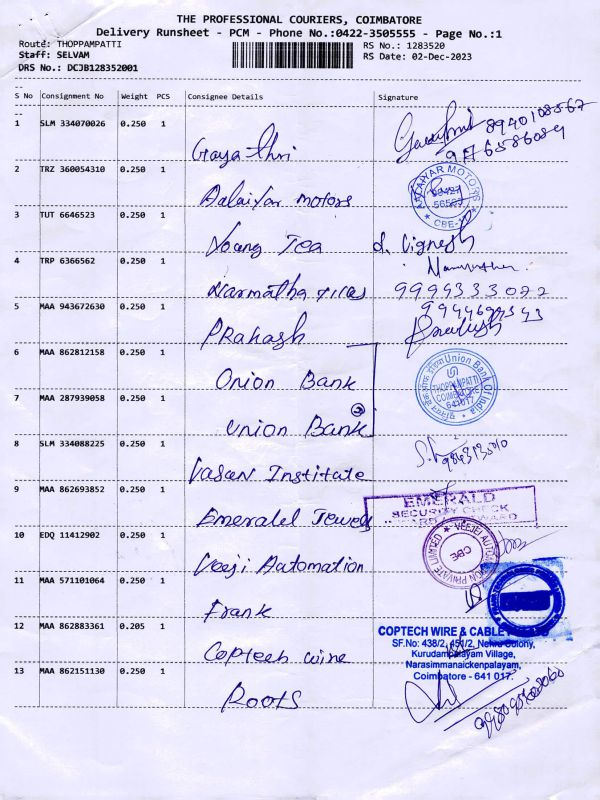 THE PROFESSIONAL COURIERS, COIMBATORE
Delivery Runsheet - PCM - Phone No.:0422-3505555 - Page No.:1
Route: THOPPAMPATTI
RS No.: 1283520
Staff: SELVAM
RS Date: 02-Dec-2023
DRS No.: DCJB128352001
S No Consignment No Weight PCS Consignee Details Signature
1 SLM 334070026 0.250 1 Gayathri 8940108567
9176586089
2 TRZ 360054310 0.250 1 Aalaiyar motors
AALAIYAR MOTORS
CBE
3 TUT 6646523 0.250 1 Young Tea S. Vignesh
4 TRP 6366562 0.250 1 Narmatha tiles
9994333022
5 MAA 943672630 0.250 1 PRakash
6 MAA 862812158 0.250 1 Onion Bank
Union Bank of India
THOPPAMPATTI
COIMBATORE
641 017
7 MAA 287939058 0.250 1 Union Bank
8 SLM 334088225 0.250 1 Vasan Institute
9 MAA 862693852 0.250 1 Emerald Jewel
EMERALD
SECURITY CHECK
10 EDQ 11412902 0.250 1 Veeji Automation
VEEJEI AUTOMATION PRIVATE LIMITED
CBE
11 MAA 571101064 0.250 1 Frank
12 MAA 862883361 0.205 1 Coptech wire
COPTECH WIRE & CABLE
SF.No: 438/2, 451/2, Nehru Colony,
Kurudampalayam Village,
Narasimmanaickenpalayam,
Coimbatore - 641 017.
13 MAA 862151130 0.250 1 Roots